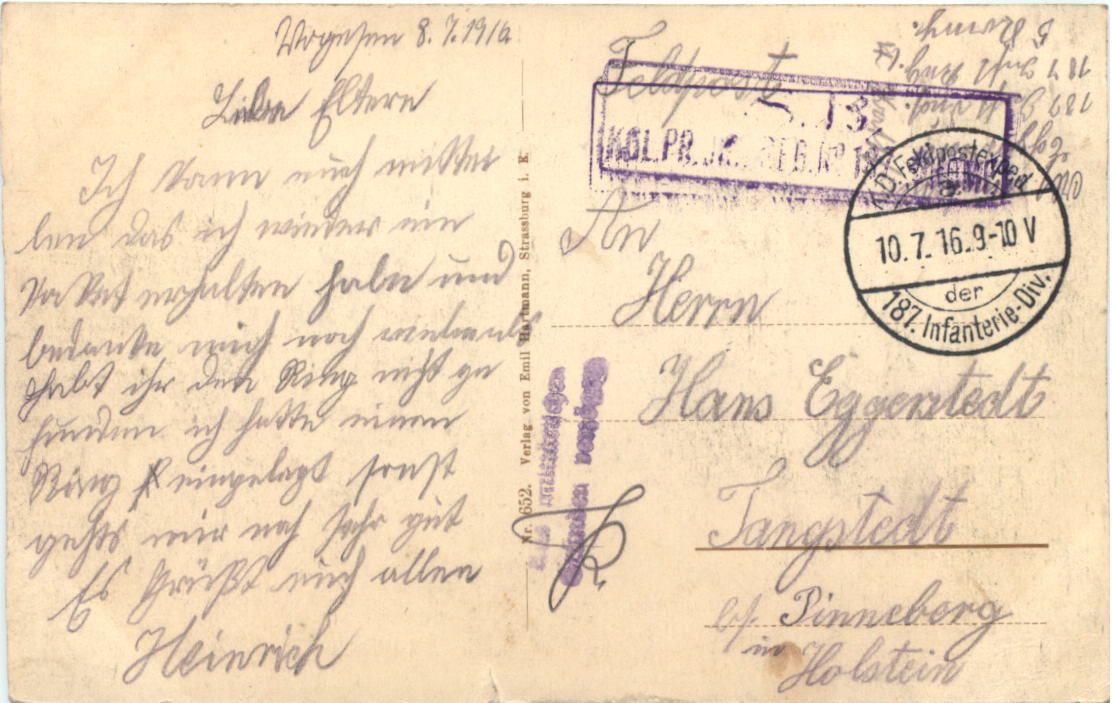 Vogesen 8.7.1916
Liebe Eltern
Ich kann euch mittei
len das ich wieder ein
Paket erhalten habe und
bedanke mich noch vielmals
habt ihr den Ring nicht ge
funden ich hatte einen
Ring eingelegt sonst
gehts mir noch sehr gut
Es Grüßt euch allen
Heinrich
Nr. 652. Verlag von Emil Hartmann, Strassburg i. E.
Aus militärischen
Gründen verzögert
Feldpost
5. 
KGL. PR. REG. Nº
187 Inft Reg.
5 Komp.
187
K.D. Feldpostexped.
a
10.7.16.9-10 V
der
187. Infanterie-Div.
An
Herrn
Hans Eggerstedt
Tangstedt
bj. Pinneberg
in Holstein